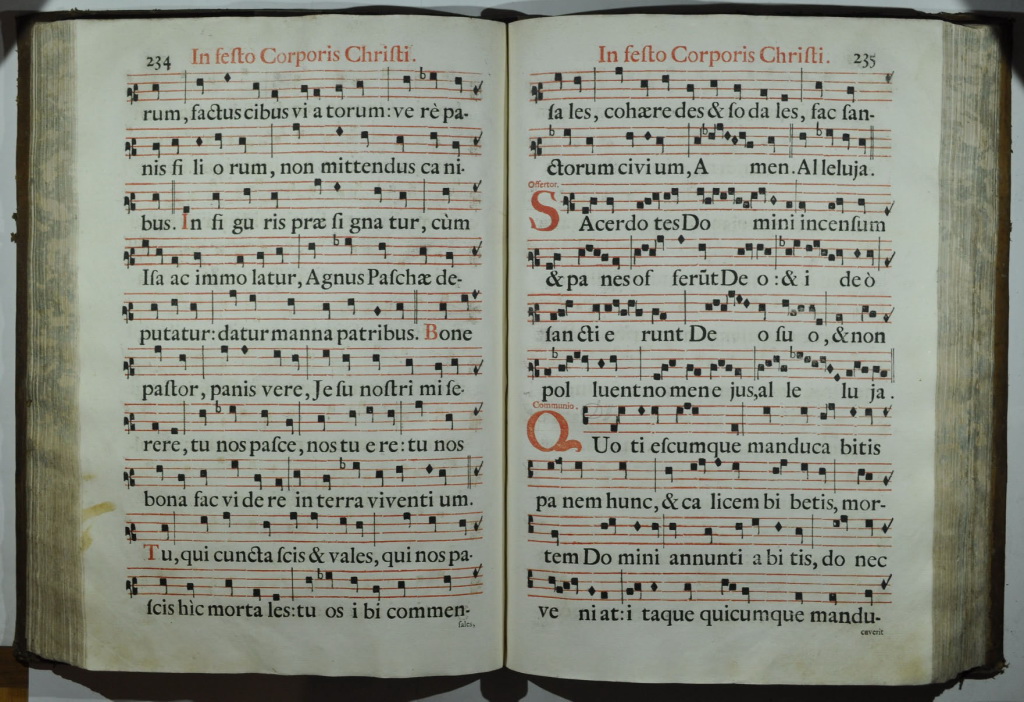 234 In feſto Corporis Chriſti.
rum, factus cibus vi a torum: ve rè pa-
nis fi li o rum, non mittendus ca ni-
bus. In fi gu ris præ ſi gna tur, cùm
Iſa ac immo latur, Agnus Paſchæ de-
putatur: datur manna patribus. Bone
paſtor, panis vere, Je ſu noſtri mi ſe-
rere, tu nos paſce, nos tu e re: tu nos
bona fac vi de re in terra viventi um.
Tu, qui cuncta ſcis & vales, qui nos pa-
ſcis hìc morta les: tu os i bi commen-
ſales,
In feſto Corporis Chriſti. 235
ſa les, cohære des & ſo da les, fac ſan-
ctorum civi um, A men. Al leluja.
Offertor.
SAcerdo tes Do mini incenſum
& pa nes of ferūt De o: & i deò
ſan cti e runt De o ſu o, & non
pol luent no men e jus, al le lu ja.
Communio.
QUo ti eſcumque manduca bitis
pa nem hunc, & ca licem bi betis, mor-
tem Do mini annunti a bi tis, do nec
ve ni at: i taque quicumque mandu-
caverit